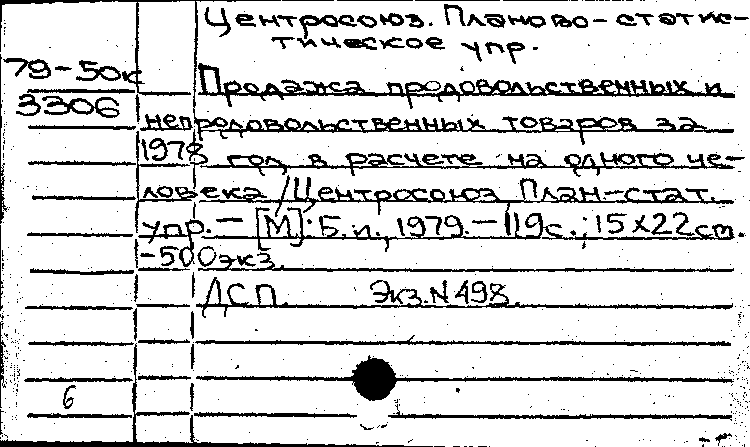 Центросоюз. Планово-статис-
тическое упр.
79-50к
3306
Продажа продовольственных и
непродовольственных товаров за
1978 год в расчете на одного че-
ловека / Центросоюз План-стат.
упр. — [М]: Б.и., 1979. — 119с.; 15х22см.
-500экз.
ДСП. Экз. N 498.
6